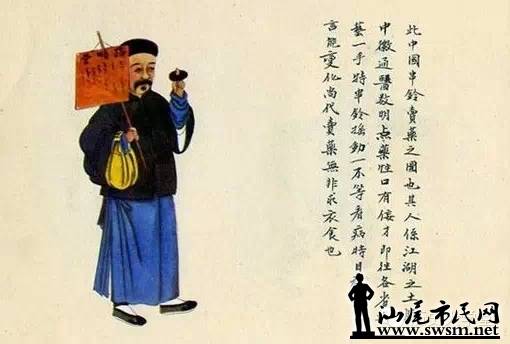 此中國串鈴賣藥之圖也其人係江湖之士
中微通醫数明点藥性口有佞才即往各省
藝一手持串鈴摇動一不等看病時目
言能變化尚代賣藥無非求衣食也
汕尾市民网
www.swsm.net